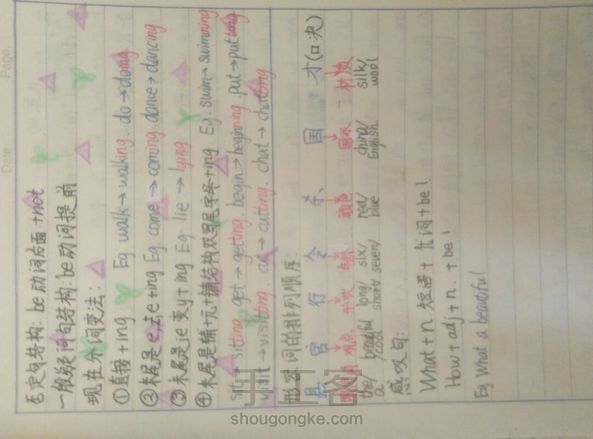 Page
Date
否定句结构: be动词后面+not
一般疑问句结构: be动词提前
现在分词变法:
①直接+ing Eg walk→walking. do→doing
②末尾是e,去e+ing Eg come→coming. dance→dancing
③末尾是ie变y+ing Eg lie → lying
④末尾是辅+元+辅结构双写尾字母+ing Eg. swim→swimming
sit→sitting. get→getting. begin→beginning. put→putting
visit→visiting. cut→cutting. chat→chatting
形容词的排列顺序:
县 官 行 令 杀 国 才(口决)
观点 颜色 国家 材质
the/a beautiful/cool long/short six/seven red/blue china/English silk/wool
感叹句:
What+n.短语+ +be!
How+adj+n. +be!
Eg What a beautiful!
shougongke.com